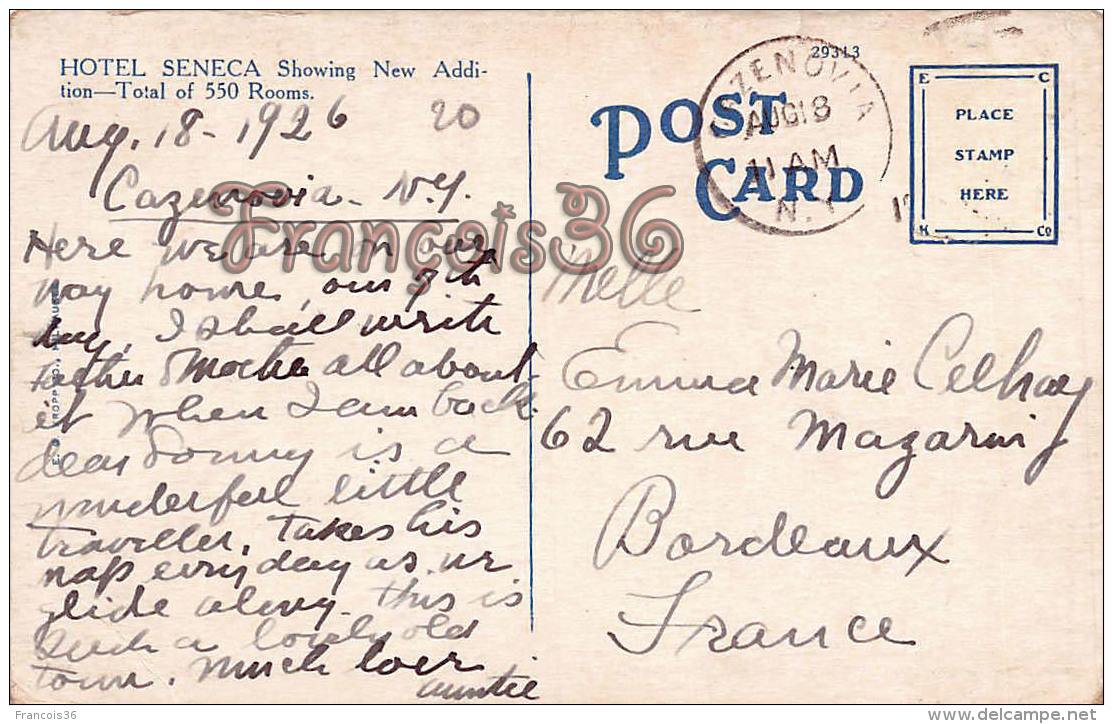 HOTEL SENECA Showing New Addi-
tion—Total of 550 Rooms.
Aug. 18 - 1926 20
Cazenovia - N.Y.
Here we are on our
way home, our 9th
day, I shall write
father & Mother all about
it when I am back
dear Sonny is a
wonderful little
traveller, takes his
nap every day as we
glide along - this is
such a lovely old
town. Much love
auntie
29313
POST
CARD
CAZENOVIA
AUG 18
11 AM
N.Y.
E C
PLACE
STAMP
HERE
K Co
Melle
Emma Marie Celhay
62 rue Mazarin
Bordeaux
France
François36
Francois36
www.delcampe.net